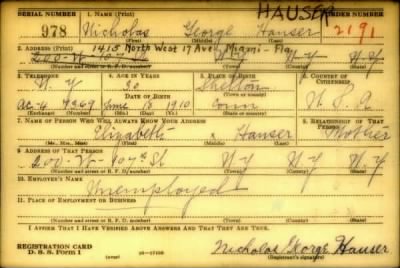 HAUSER
SERIAL NUMBER 1. NAME (Print) ORDER NUMBER
978 Nicholas George Hauser 2191
(First) (Middle) (Last)
1415 North West 17 Ave Miami - Fla
2. ADDRESS (Print)
200-W-107 St N Y N Y N Y
(Number and street or R. F. D. number) (Town) (County) (State)
3. TELEPHONE 4. AGE IN YEARS 5. PLACE OF BIRTH 6. COUNTRY OF CITIZENSHIP
N. Y 30 Shelton
DATE OF BIRTH
AC-4 9369 June 8 1910 Conn U. S. A
(Exchange) (Number) (Mo.) (Day) (Yr.) (State or country)
7. NAME OF PERSON WHO WILL ALWAYS KNOW YOUR ADDRESS 8. RELATIONSHIP OF THAT PERSON
Elizabeth x Hauser Mother
(Mr., Mrs., Miss) (First) (Middle) (Last)
9. ADDRESS OF THAT PERSON
200-W-107th St N Y N Y N Y
(Number and street or R. F. D. number) (Town) (County) (State)
10. EMPLOYER'S NAME
Unemployed
11. PLACE OF EMPLOYMENT OR BUSINESS
(Number and street or R. F. D. number) (Town) (County) (State)
I AFFIRM THAT I HAVE VERIFIED ABOVE ANSWERS AND THAT THEY ARE TRUE.
REGISTRATION CARD
D. S. S. Form 1 (over) Nicholas George Hauser
(Registrant's signature)